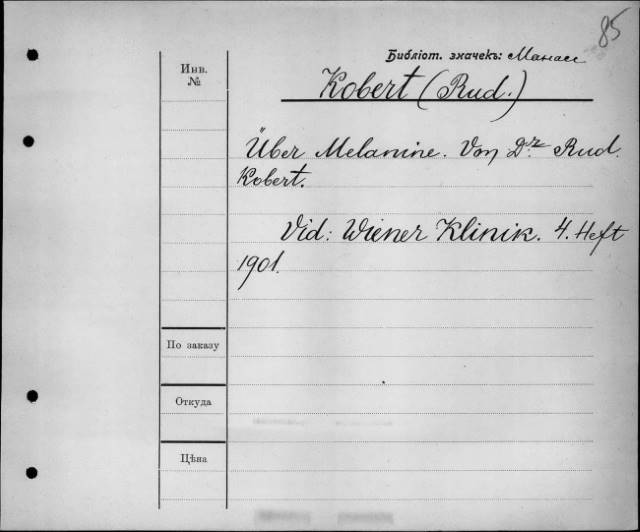 85
Библіот. значекъ: Манасс
Инв.
№
Kobert (Rud.)
Über Melanine. Von Dr. Rud.
Kobert.
Vid: Wiener Klinik. 4. Heft
1901.
По заказу
Откуда
Цѣна